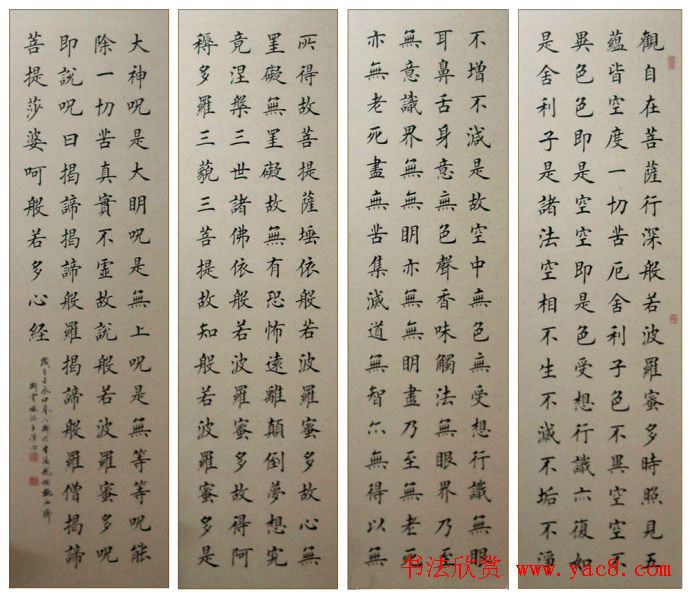 觀自在菩薩行深般若波羅蜜多時照見五
蘊皆空度一切苦厄舍利子色不異空空不
異色色即是空空即是色受想行識亦復如
是舍利子是諸法空相不生不滅不垢不淨
不增不減是故空中無色無受想行識無眼
耳鼻舌身意無色聲香味觸法無眼界乃至
無意識界無無明亦無無明盡乃至無老死
亦無老死盡無苦集滅道無智亦無得以無
所得故菩提薩埵依般若波羅蜜多故心無
罣礙無罣礙故無有恐怖遠離顛倒夢想究
竟涅槃三世諸佛依般若波羅蜜多故得阿
耨多羅三藐三菩提故知般若波羅蜜多是
大神呪是大明呪是無上呪是無等等呪能
除一切苦真實不虛故說般若波羅蜜多呪
即說呪曰揭諦揭諦般羅揭諦般羅僧揭諦
菩提莎婆呵般若多心経
书法欣赏 www.yac8.com